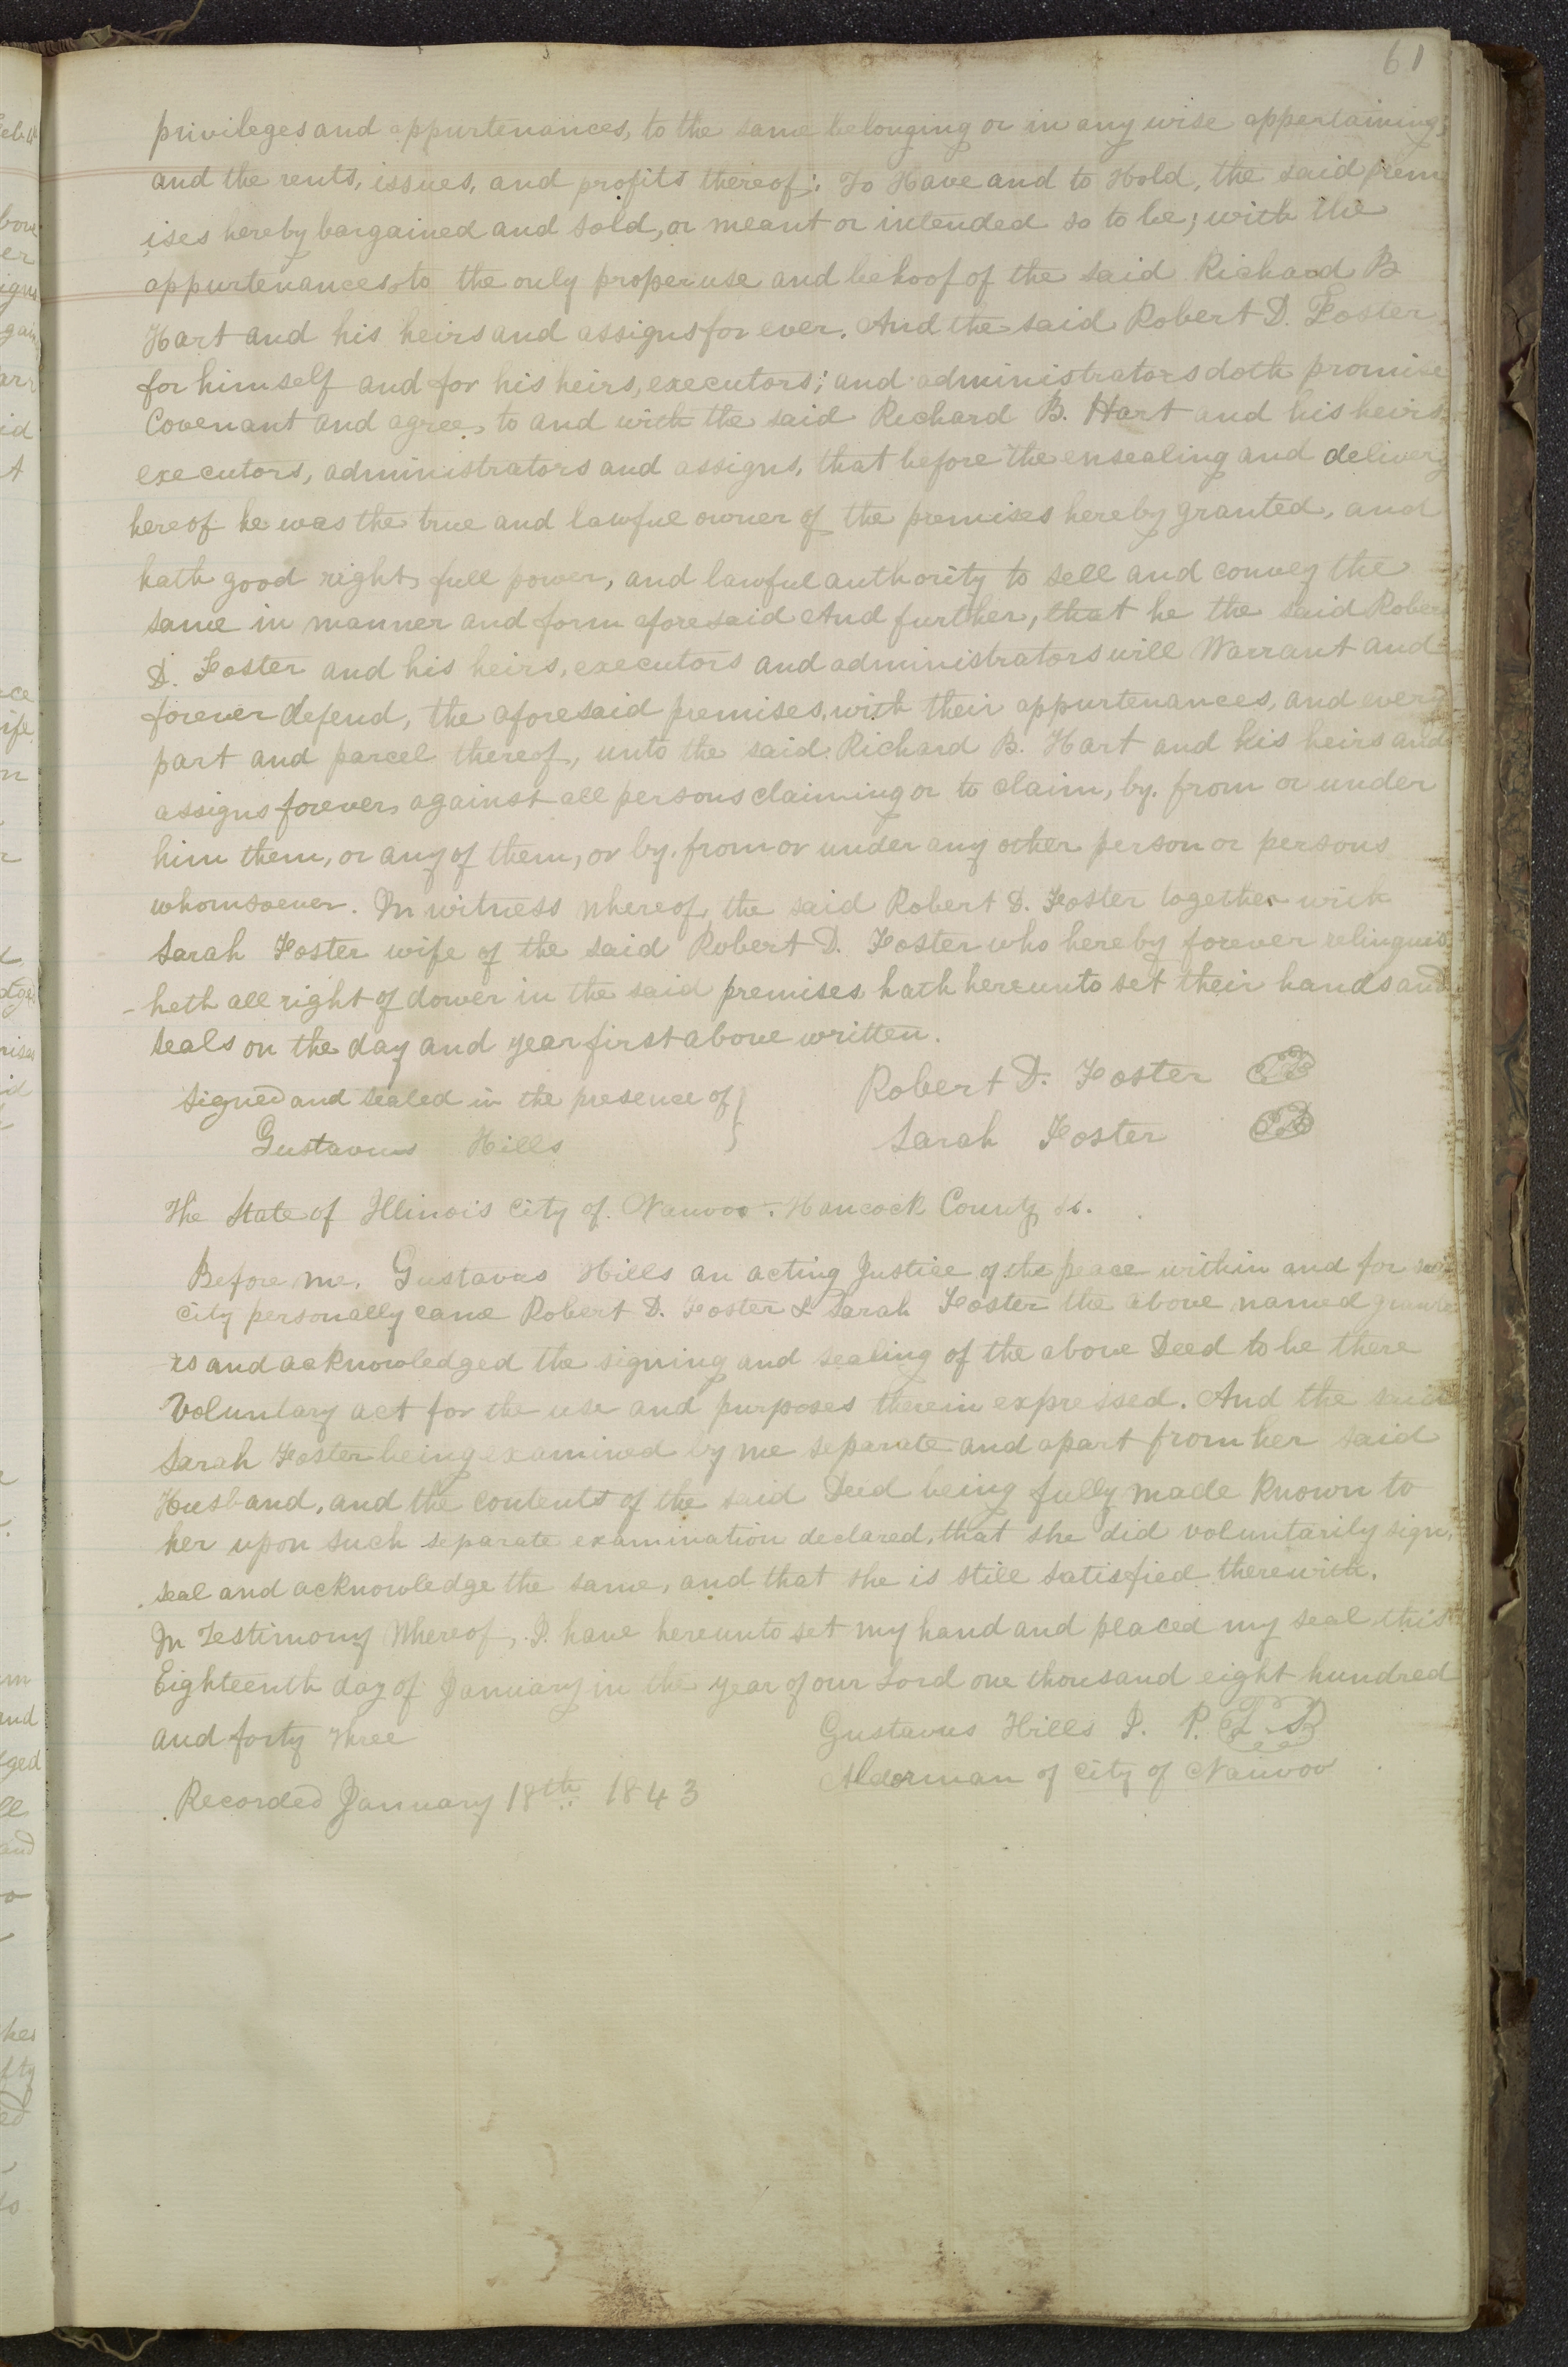 61
privileges and appurtenances, to the same belonging or in any wise appertaining;
and the rents, issues, and profits thereof: To Have and to Hold, the said prem
ises hereby bargained and sold, or meant or intended so to be; with the
appurtenances to the only proper use and behoof of the said Richard B
Hart and his heirs and assigns for ever. And the said Robert D. Foster
for himself and for his heirs, executors; and administrators doth promise
Covenant and agree, to and with the said Richard B. Hart and his heirs
executors, administrators and assigns, that before the ensealing and delivery
hereof he was the true and lawful owner of the premises hereby granted, and
hath good right, full power, and lawful authority to sell and convey the
same in manner and form aforesaid And further, that he the said Robert
D. Foster and his heirs, executors and administrators will Warrant and
forever defend, the aforesaid premises, with their appurtenances, and every
part and parcel thereof, unto the said Richard B. Hart and his heirs and
assigns forever, against all persons claiming or to claim, by. from or under
him them, or any of them, or by. from or under any other person or persons
whomsoever. In witness whereof, the said Robert D. Foster together with
Sarah Foster wife of the said Robert D. Foster who hereby forever relinquis
-heth all right of dower in the said premises, hath hereunto set their hands and
seals on the day and year first above written.
Signed and sealed in the presence of } Robert D. Foster
Gustavus Hills } Sarah Foster
The State of Illinois City of Nauvoo. Hancock County ss.
Before me, Gustavus Hills an acting Justice of the peace within and for said
City personally came Robert D. Foster & Sarah Foster the above named grante
rs and acknowledged the signing and sealing of the above Deed to be there
Voluntary act for the use and purposes therein expressed. And the said
Sarah Foster being examined by me separate and apart from her said
Husband, and the contents of the said Deed being fully made known to
her upon such separate examination declared, that she did voluntarily sign,
seal and acknowledge the same, and that she is still satisfied therewith.
In Testimony Whereof, I. have hereunto set my hand and placed my seal this
Eighteenth day of January in the year of our Lord one thousand eight hundred
and forty three Gustavus Hills J. P. L S
Alderman of City of Nauvoo
Recorded January 18th 1843